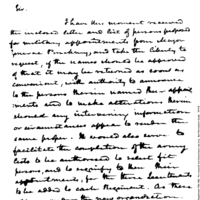 Sir.
I have this moment received
the inclosed letter and list of persons proposed
for military appointments from Major
General Pinckney, and take the liberty to
request, if the names should be approved
of that it may be returned as soon as
convenient, with authority to announce
to the persons therein named their appoint
ments and to make alterations therein
should any intervening information
or circumstances appear to render the
same proper. It would also serve to
facilitate the completion of the army
lists to be authorised to select fit
persons, and to notify to them their
appointments, for the three Lieutenants
to be added to each Regiment. As these
are the new organization